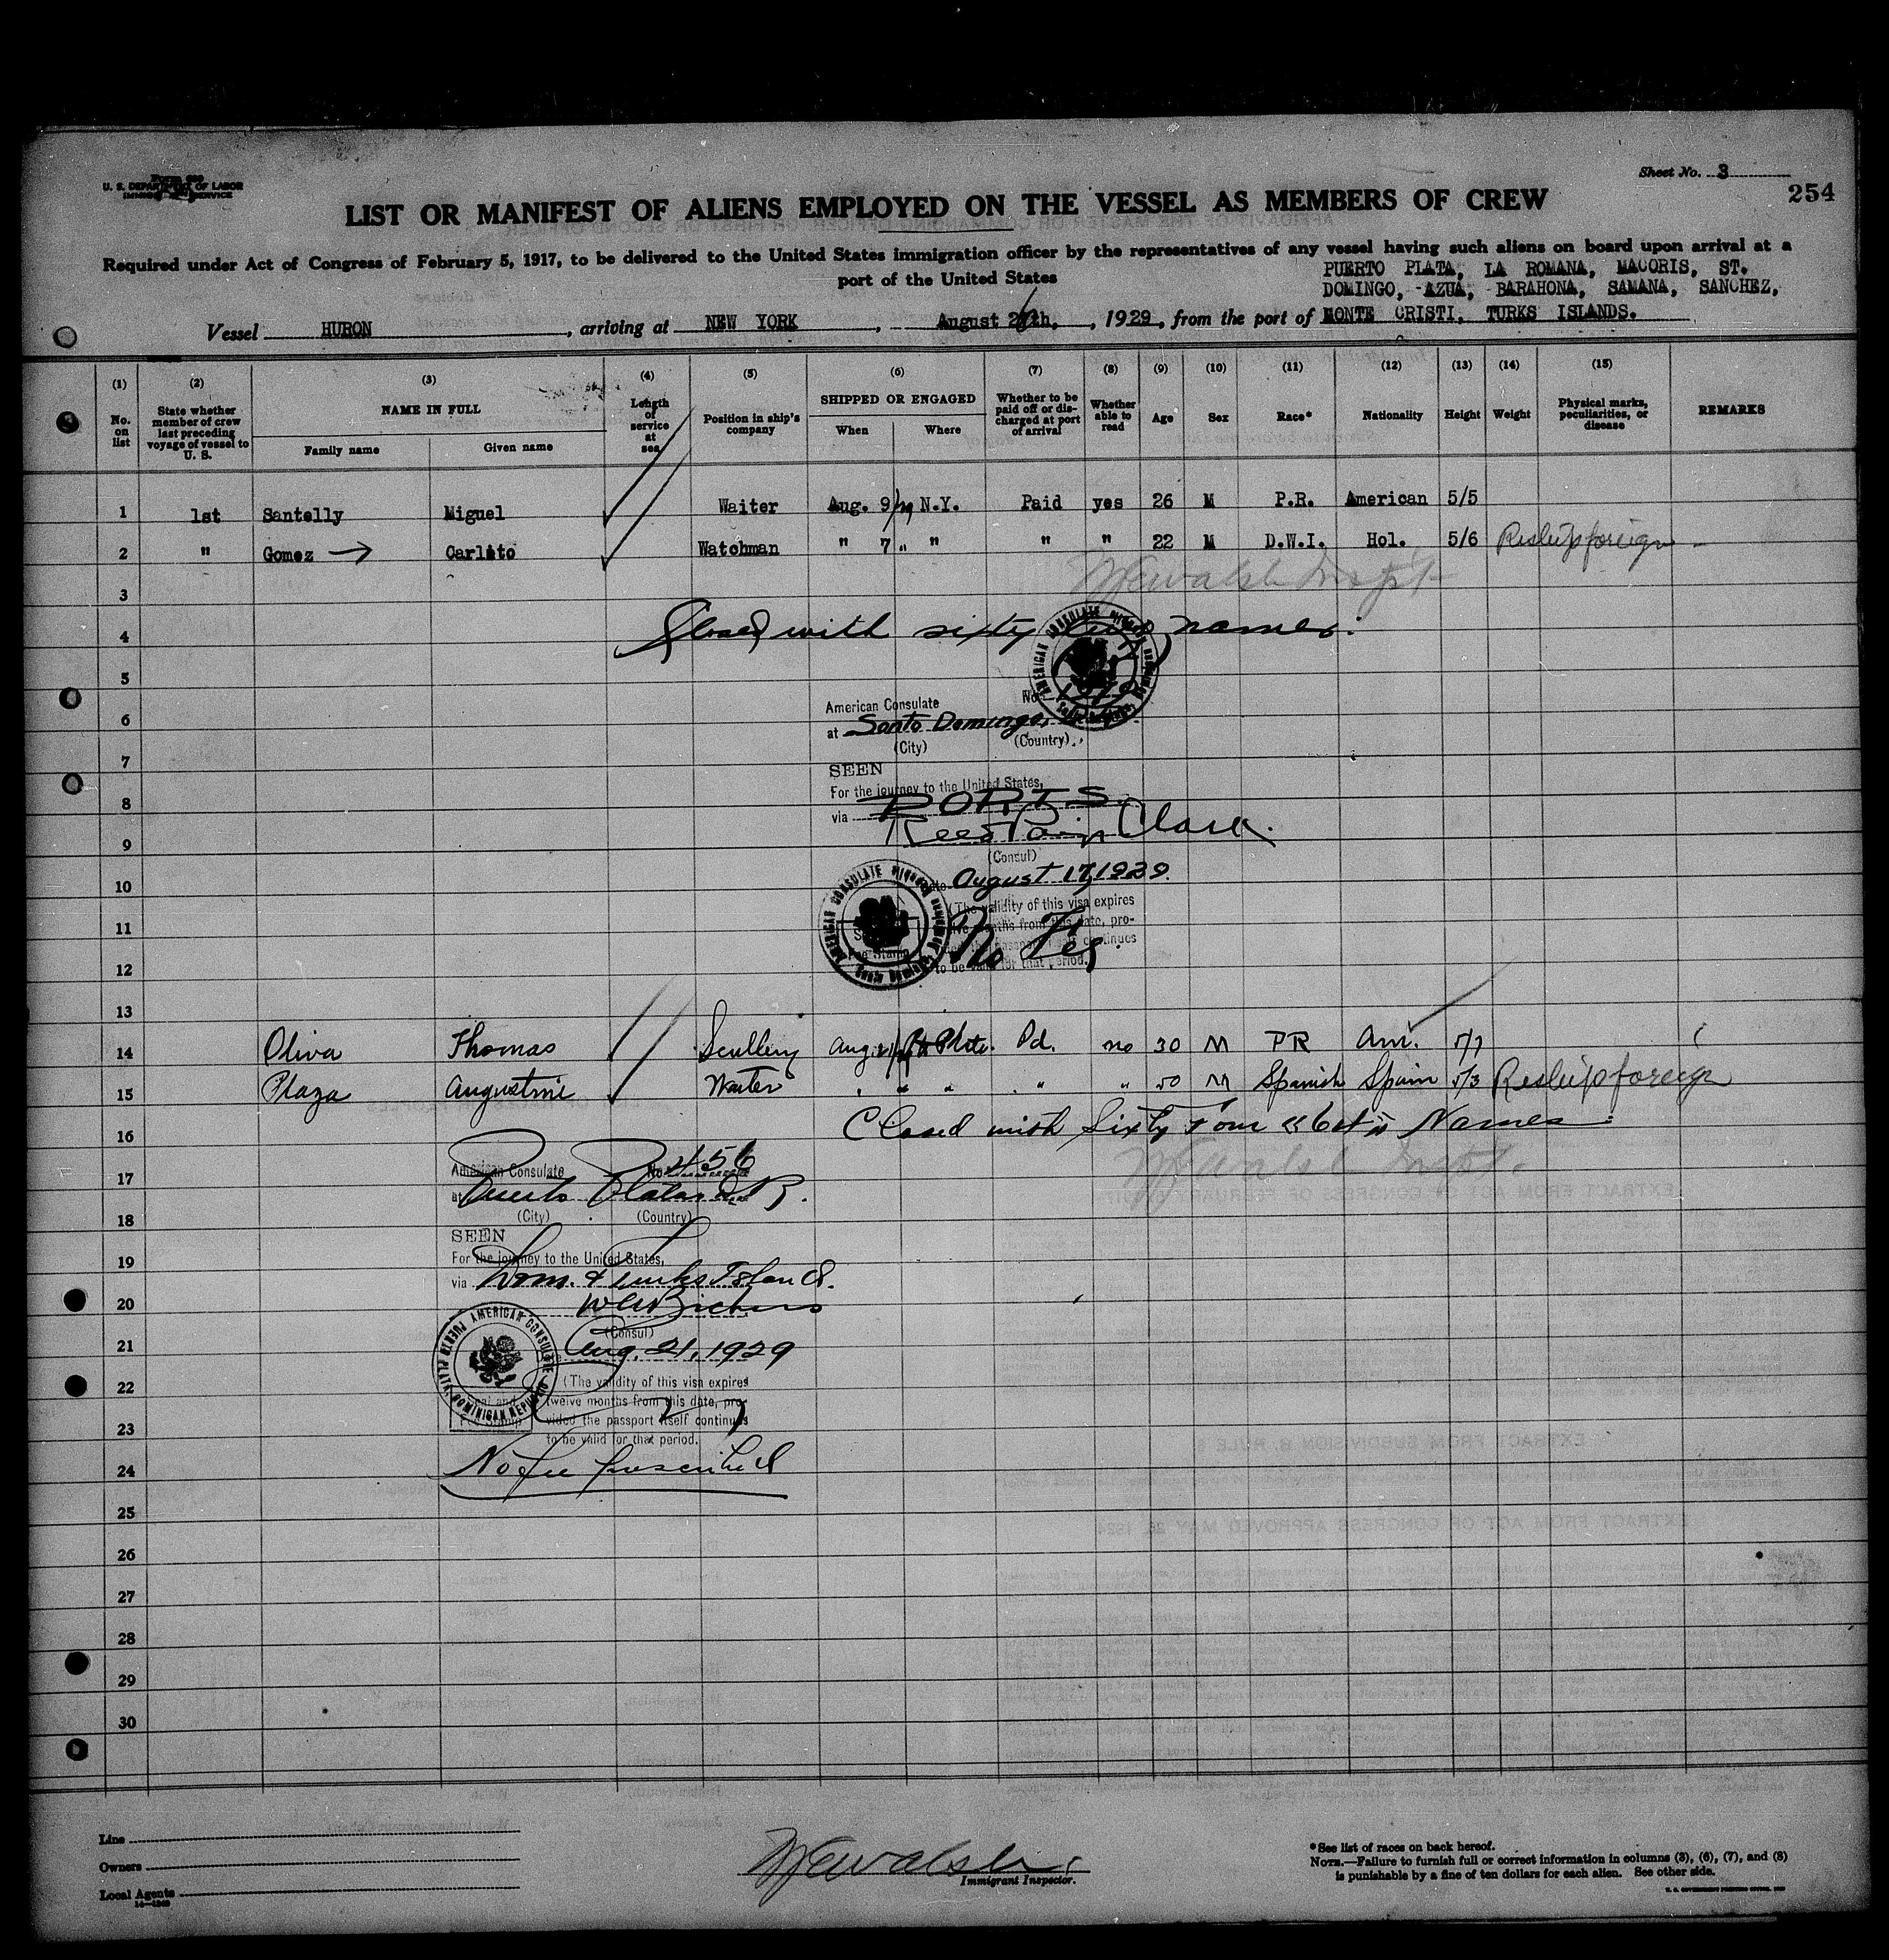 Form 689
U. S. DEPARTMENT OF LABOR
IMMIGRATION SERVICE
Sheet No. 3
254
LIST OR MANIFEST OF ALIENS EMPLOYED ON THE VESSEL AS MEMBERS OF CREW
Required under Act of Congress of February 5, 1917, to be delivered to the United States immigration officer by the representatives of any vessel having such aliens on board upon arrival at a
port of the United States
PUERTO PLATA, LA ROMANA, MACORIS, ST.
DOMINGO, AZUA, BARAHONA, SAMANA, SANCHEZ,
Vessel HURON, arriving at NEW YORK, August 26th, 1929, from the port of MONTE CRISTI, TURKS ISLANDS.
(1) (2) (3) (4) (5) (6) (7) (8) (9) (10) (11) (12) (13) (14) (15)
No. on list
State whether member of crew last preceding voyage of vessel to U. S.
NAME IN FULL
Family name
Given name
Length of service at sea
Position in ship's company
SHIPPED OR ENGAGED
When
Where
Whether to be paid off or discharged at port of arrival
Whether able to read
Age
Sex
Race*
Nationality
Height
Weight
Physical marks, peculiarities, or disease
REMARKS
1 1st Santelly Miguel Waiter Aug. 9/29 N.Y. Paid yes 26 M P.R. American 5/5
2 " Gomez → Carlito Watchman " 7 " " " " 22 M D.W.I. Hol. 5/6 Reship foreign
3 Walsh Inspt
4 Closed with sixty two names.
5
American Consulate No.
6 at Santo Domingo,
(City) (Country)
7
SEEN
For the journey to the United States,
8 via PORTS
Reed Paige Clark.
9
(Consul)
10 August 17, 1929.
(The validity of this visa expires
11 No Fee.
12 to be valid for that period.)
13
14 Oliva Thomas Scullery Aug. 21/29 Pt Plata. Pd. no 30 M PR Am. 5/7
15 Plaza Augustine Waiter " " " " " 50 M Spanish Spain 5/3 Reship foreign
16 Closed with Sixty Four "64" Names
Walsh Inspt.
American Consulate No. 456
17
at Puerto Plata D.R.
18 (City) (Country)
SEEN
19 For the journey to the United States,
via Dom. & Turks Island.
20 W A Bickers
(Consul)
21 Aug. 21, 1929
22 (The validity of this visa expires
twelve months from this date, pro-
23 vided the passport itself continues
to be valid for that period.
24 No fee prescribed
25
26
27
28
29
30
AMERICAN CONSULATE
PUERTO PLATA, DOMINICAN REPUBLIC
Line
Owners
Local Agents
Walsh
Immigrant Inspector.
*See list of races on back hereof.
NOTE.—Failure to furnish full or correct information in columns (3), (6), (7), and (8)
is punishable by a fine of ten dollars for each alien. See other side.